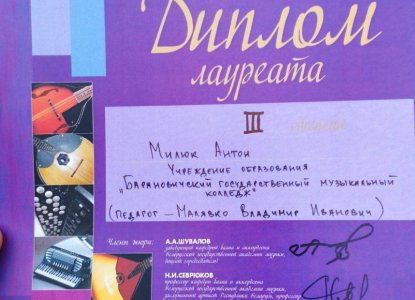 Диплом
лауреата
III степени
Милюк Антон
Учреждение образования
"Барановический государственный музыкальный
колледж"
(педагог – Малявко Владимир Иванович)
Члены жюри:
А.А.ШУВАЛОВ
заведующий кафедрой баяна и аккордеона
Белорусской государственной академии музыки,
Н.И.СЕВРЮКОВ
профессор кафедры баяна и аккордеона
Белорусской государственной академии музыки,
заслуженный артист Республики Беларусь, профессор